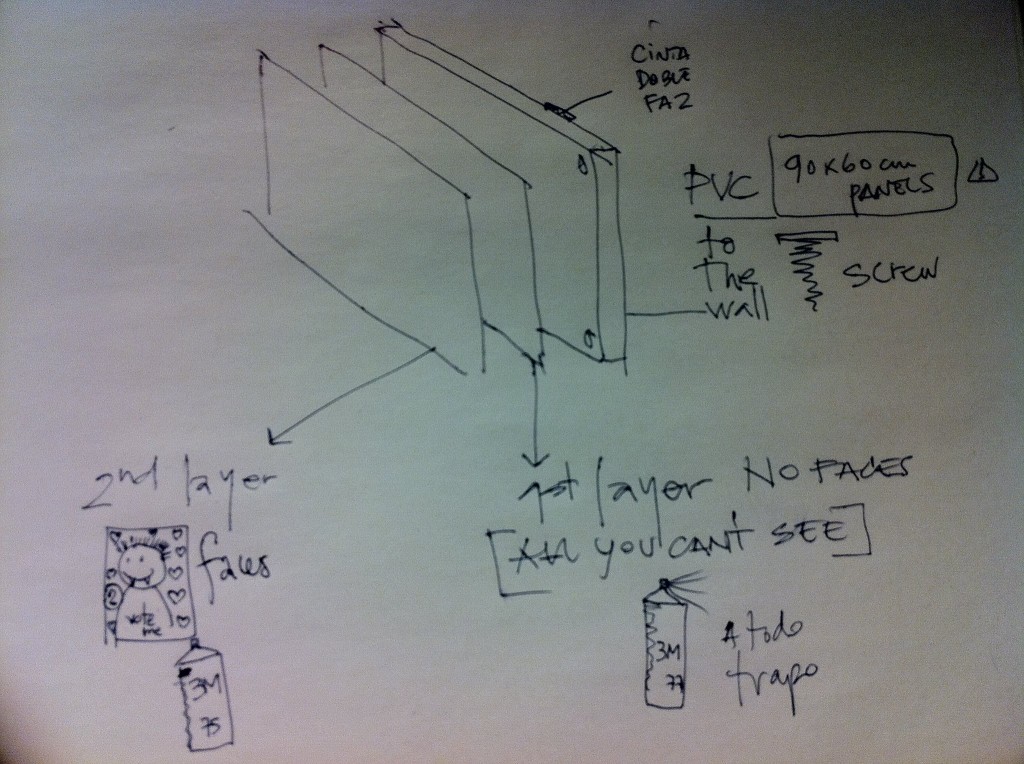 CINTA
DOBLE
FAZ
PVC
90x60cm
PANELS
to
the
wall
SCREW
2nd layer
faces
vote
me
3M
75
1st layer NO FACES
[ALL YOU CAN'T SEE]
3M
77
A todo
trapo